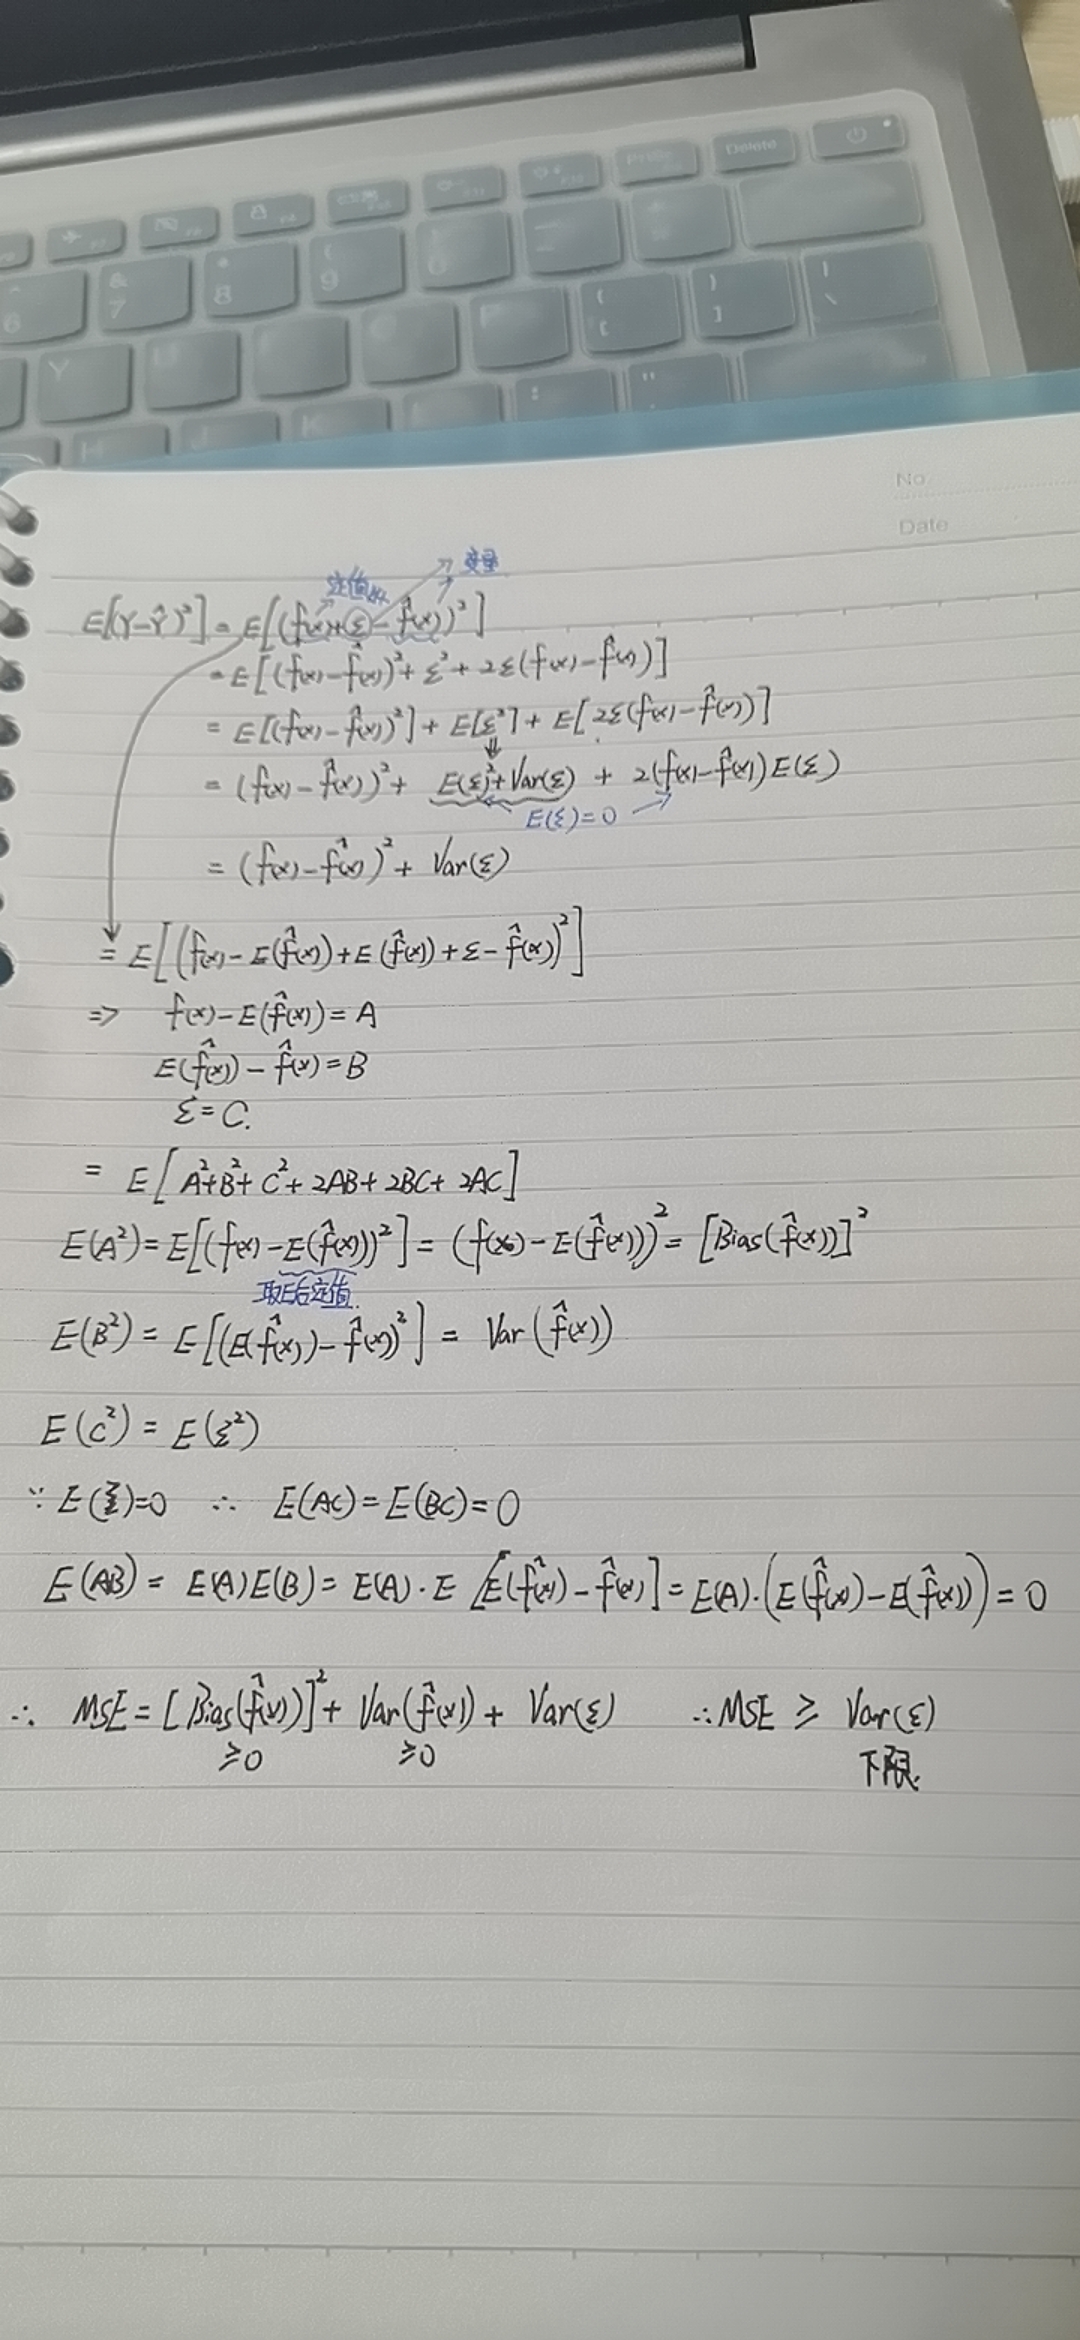 Delete
7
8
9
6
Y
No
Date
定值 变量
E[(Y-Ŷ)²] = E[(f(x)+ε-f̂(x))²]
= E[(f(x)-f̂(x))²+ε²+2ε(f(x)-f̂(x))]
= E[(f(x)-f̂(x))²]+E[ε²]+E[2ε(f(x)-f̂(x))]
= (f(x)-f̂(x))²+E(ε)²+Var(ε)+2(f(x)-f̂(x))E(ε)
E(ε)=0
= (f(x)-f̂(x))²+Var(ε)
= E[(f(x)-E(f̂(x))+E(f̂(x))+ε-f̂(x))²]
=> f(x)-E(f̂(x))=A
E(f̂(x))-f̂(x)=B
ε=C.
= E[A²+B²+C²+2AB+2BC+2AC]
E(A²)=E[(f(x)-E(f̂(x)))²]=(f(x)-E(f̂(x)))²=[Bias(f̂(x))]²
取E后定值.
E(B²)=E[(E(f̂(x))-f̂(x))²]=Var(f̂(x))
E(C²)=E(ε²)
∵E(ε)=0 ∴E(AC)=E(BC)=0
E(AB)=E(A)E(B)=E(A)·E[E(f̂(x))-f̂(x)]=E(A)·(E(f̂(x))-E(f̂(x)))=0
∴ MSE=[Bias(f̂(x))]²+Var(f̂(x))+Var(ε) ∴MSE≥Var(ε)
≥0 ≥0 下限.